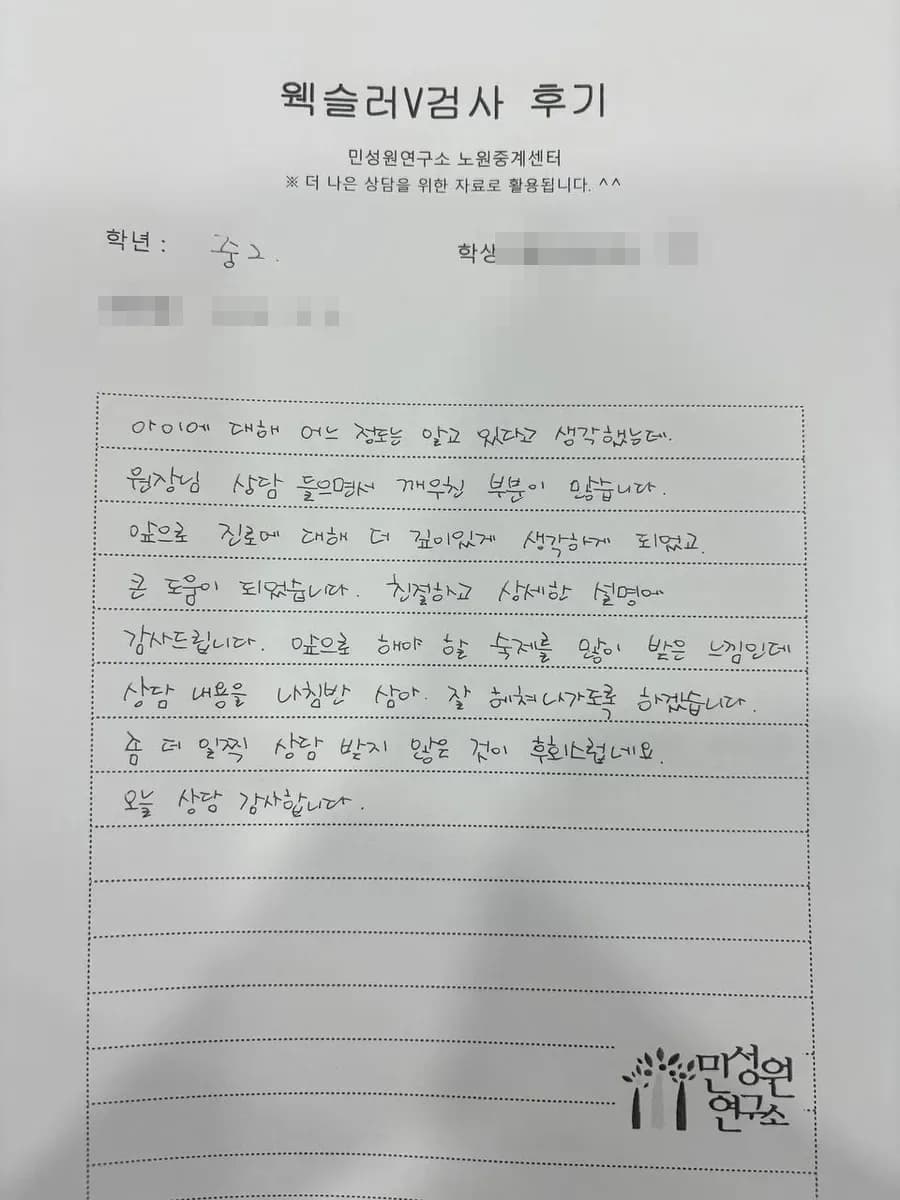 웩슬러V검사 후기
민성원연구소 노원중계센터
※ 더 나은 상담을 위한 자료로 활용됩니다. ^^
학년 : 중2.
학생
아이에 대해 어느 정도는 알고 있다고 생각했는데.
원장님 상담 들으면서 깨우친 부분이 많습니다.
앞으로 진로에 대해 더 깊이있게 생각하게 되었고.
큰 도움이 되었습니다. 친절하고 상세한 설명에
감사드립니다. 앞으로 해야 할 숙제를 많이 받은 느낌인데
상담 내용을 나침반 삼아. 잘 헤쳐나가도록 하겠습니다.
좀 더 일찍 상담 받지 않은 것이 후회스럽네요.
오늘 상담 감사합니다.
민성원
연구소